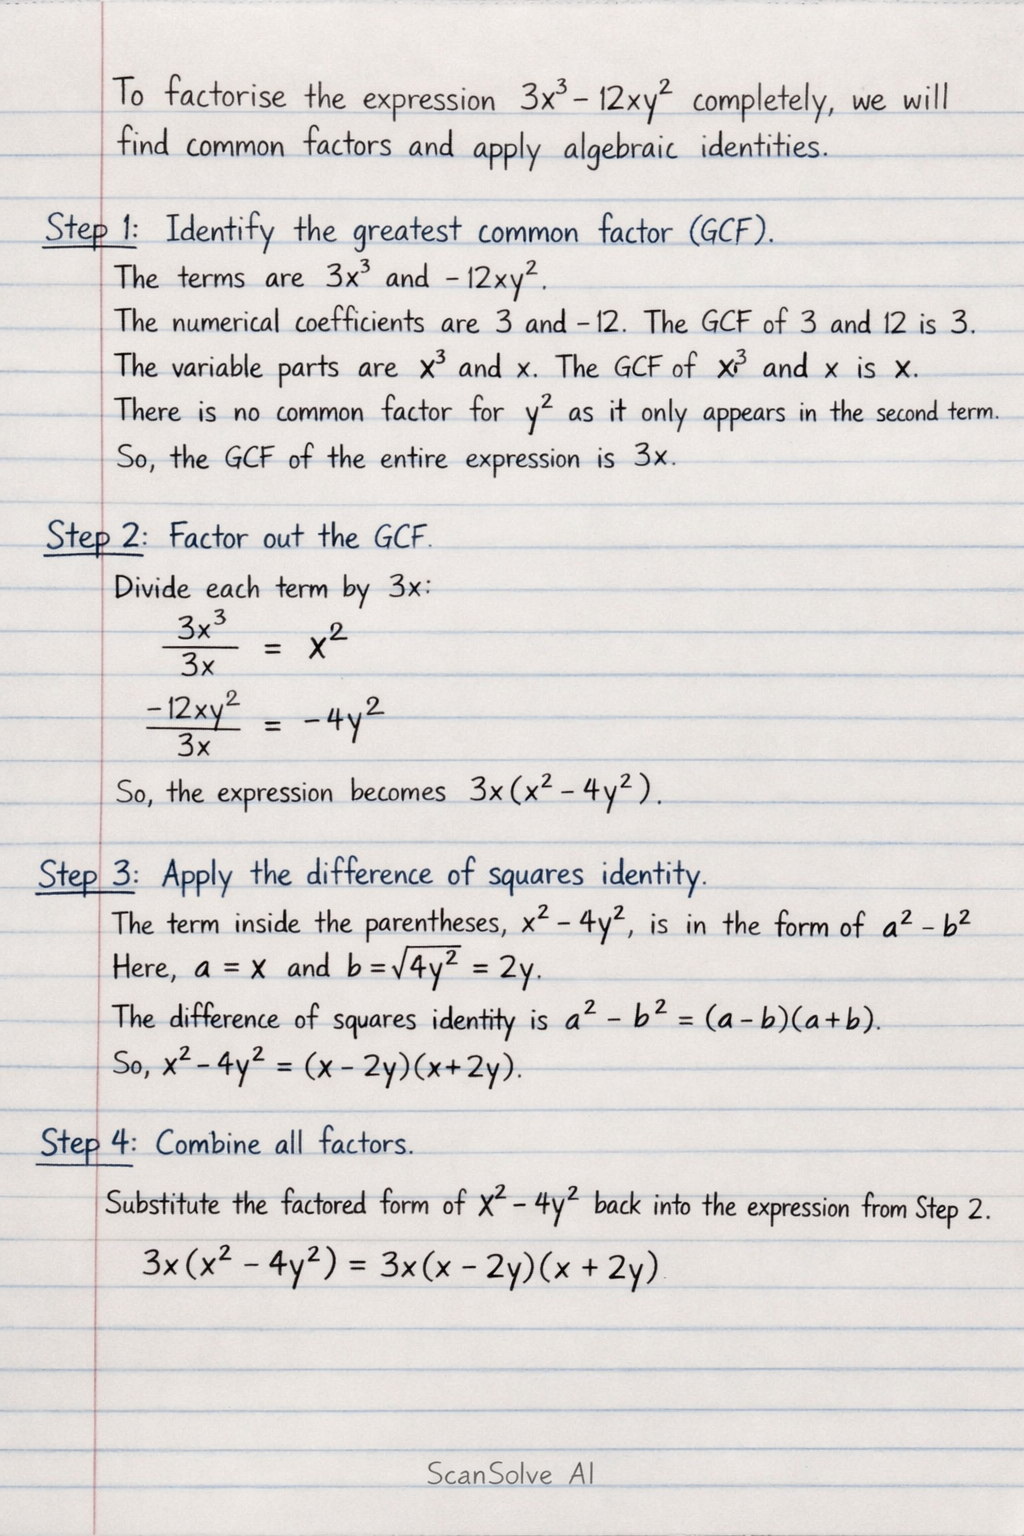 To factorise the expression 3x³ − 12xy² completely, we will
find common factors and apply algebraic identities.
Step 1: Identify the greatest common factor (GCF).
The terms are 3x³ and −12xy².
The numerical coefficients are 3 and −12. The GCF of 3 and 12 is 3.
The variable parts are x³ and x. The GCF of x³ and x is x.
There is no common factor for y² as it only appears in the second term.
So, the GCF of the entire expression is 3x.
Step 2: Factor out the GCF.
Divide each term by 3x:
3x³/3x = x²
−12xy²/3x = −4y²
So, the expression becomes 3x(x² − 4y²).
Step 3: Apply the difference of squares identity.
The term inside the parentheses, x² − 4y², is in the form of a² − b²
Here, a = x and b = √4y² = 2y.
The difference of squares identity is a² − b² = (a − b)(a + b).
So, x² − 4y² = (x − 2y)(x + 2y).
Step 4: Combine all factors.
Substitute the factored form of x² − 4y² back into the expression from Step 2.
3x(x² − 4y²) = 3x(x − 2y)(x + 2y)
ScanSolve AI